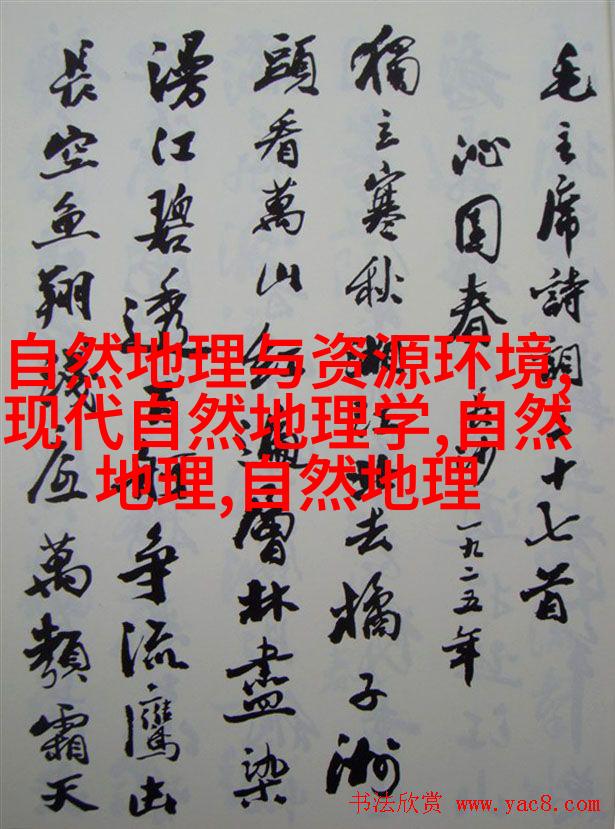 毛主席詩詞三十七首
沁園春 長沙 一九二五年
獨立寒秋湘江北去橘子洲
頭看萬山紅遍層林盡染
漫江碧透百舸争流鷹击
長空魚翔淺底萬類霜天
自然地理与资源环境,
现代自然地理学,自然
地理,自然地理
书法欣赏 www.yac8.com